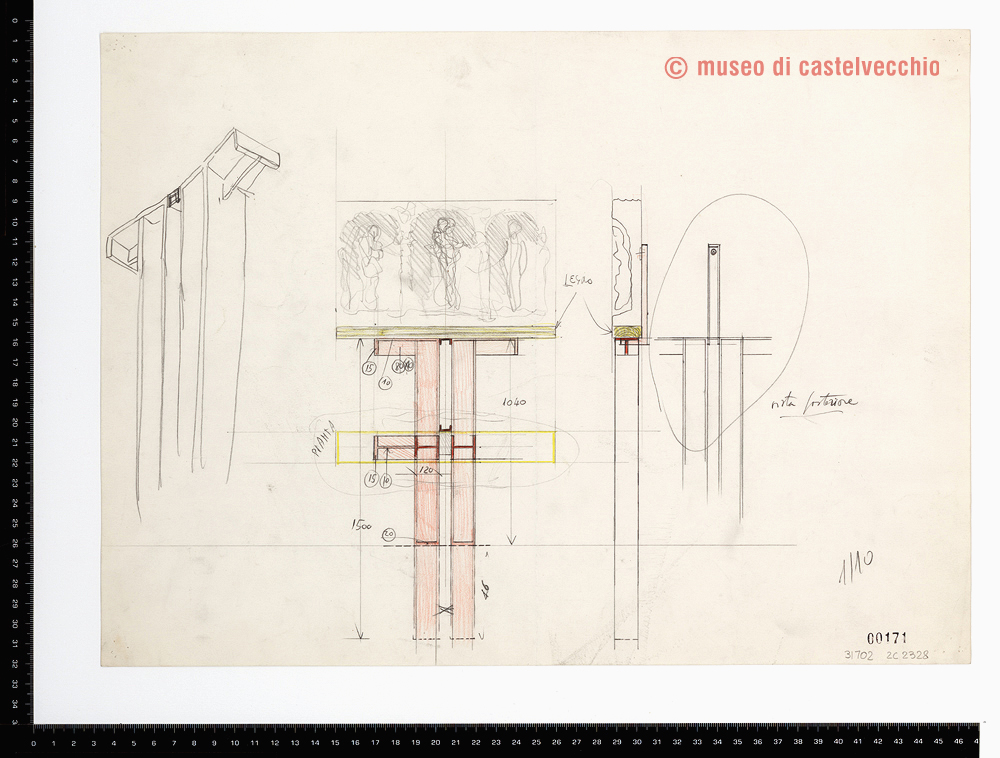 © museo di castelvecchio
LEGNO
15
10
80
10
1040
PIANTA
15
10
120
1500
20
vista posteriore
1/10
00171
31702 2C 2328
0 1 2 3 4 5 6 7 8 9 10 11 12 13 14 15 16 17 18 19 20 21 22 23 24 25 26 27 28 29 30 31 32 33 34 3
0 1 2 3 4 5 6 7 8 9 10 11 12 13 14 15 16 17 18 19 20 21 22 23 24 25 26 27 28 29 30 31 32 33 34 35 36 37 38 39 40 41 42 43 44 45 46 4